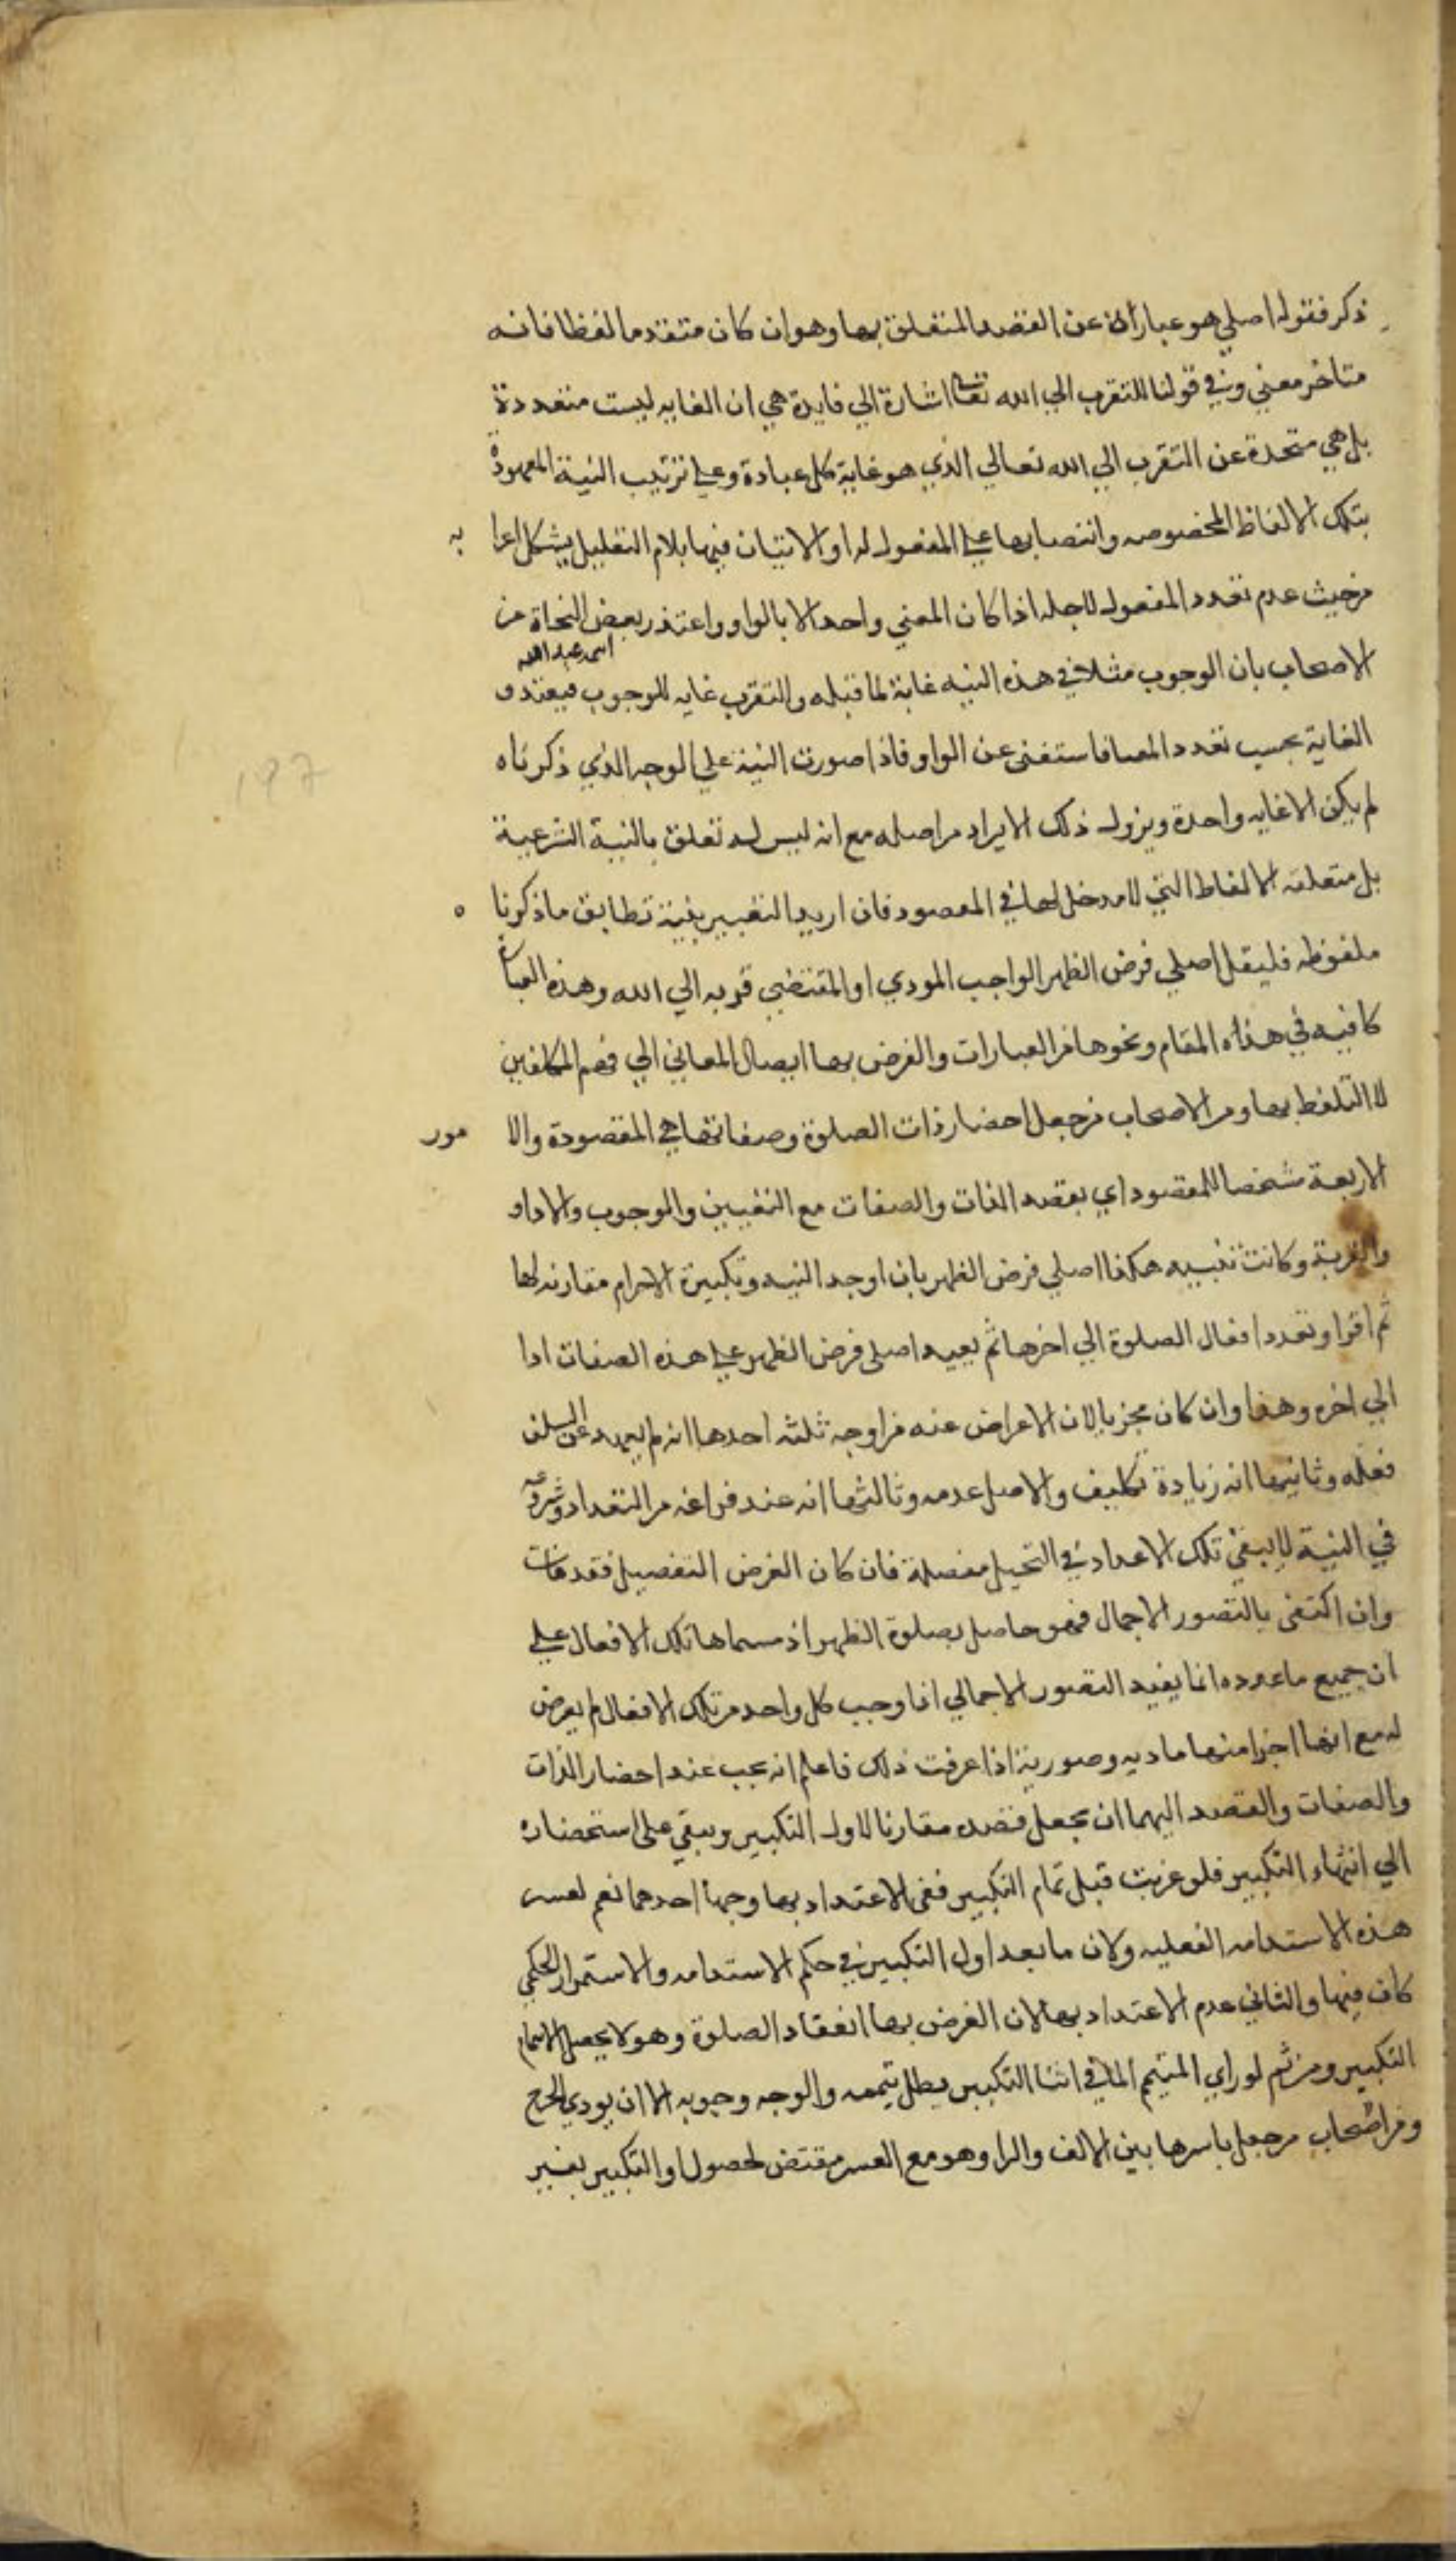 ذكر فقوله اصلي هو عبارة عن القصد المتعلق بها وهو ان كان متقدما لفظا فانه
متاخر معني وفي قولنا للتقرب الي الله تعا اشارة الي فايدة هي ان الغايه ليست متعددة
بل هي متحدة عن التقرب الي الله تعالي الذي هو غاية كل عبادة وعلي ترتيب النية المعهودة
بتلك الالفاظ المخصوصه وانتصابها علي المفعول له او الاتيان فيها بلام التعليل يشكل اعرا به
من حيث عدم تعدد المفعول لاجله اذا كان المعني واحد الا بالواو واعتذر بعض النحاة من
اسمه عبد الله
الاصحاب بان الوجوب مثلا في هذه النيه غاية لما قبله والتقرب غايه للوجوب فيتعدد
الغاية بحسب تعدد المغيا فاستغنى عن الواو فاذا صورت النية علي الوجه الذي ذكرناه
لم يكن الا غايه واحدة ويزول ذلك الايراد من اصله مع انه ليس له تعلق بالنية الشرعية
بل متعلقه الالفاظ التي لا مدخل لها في المقصود فان اريد التعبير بنية تطابق ما ذكرنا ه
ملفوظه فليقل اصلي فرض الظهر الواجب المودي او المقتضي قربه الي الله وهذه العبا
كافيه في هذه المقام ونحوها من العبارات والغرض بها ايصال المعاني الي فهم المكلفين
لا التلفظ بها ومن الاصحاب من جعل احضار ذات الصلوة وصفاتها هي المقصودة والا مور
الاربعة شخصا للمقصود اي بقصد الذات والصفات مع التعيين والوجوب والاداو
والقربة وكانت نيته هكذا اصلي فرض الظهر بان اوجد النيه وتكبيرة الاحرام مقارنه لها
ثم اقرا وتعدد افعال الصلوة الي اخرها ثم يعيد اصلي فرض الظهر علي هذه الصفات ادا
الي اخره وهذا وان كان مجزيا الا ان الاعراض عنه من اوجه ثلثه احدها انه لم يعهد عن السلف
فعله وثانيها انه زيادة تكليف والاصل عدمه وثالثها انه عند فراغه من التعداد وشروعه
في النية لا يبقي تلك الاعداد في التخيل مفصلة فان كان الغرض التفصيل فقد فات
وان اكتفى بالتصور الاجمال فهو حاصل بصلوة الظهر اذ مسماها تلك الافعال علي
ان جميع ما عدده انما يفيد التصور الاجمالي اذا وجب كل واحد من تلك الافعال لم يعرض
له مع انها اجزا منها ماديه وصورية اذا عرفت ذلك فاعلم انه يجب عند احضار الذات
والصفات والقصد اليهما ان يجعل قصده مقارنا لاول التكبير ويبقي على استحضاره
الي انتهاء التكبير فلو عزبت قبل تمام التكبير ففي الاعتداد بها وجها احدهما نعم لعسر
هذه الاستدامه الفعليه ولان ما بعد اول التكبير في حكم الاستدامه والاستمرار الحكمي
كاف فيها والثاني عدم الاعتداد بها لان الغرض بها انعقاد الصلوة وهو لا يحصل الا بتمام
التكبير ومن ثم لو راي المتيمم الما في اثنا التكبير يبطل تيممه والوجه وجوبه الا ان يودي الي حرج
ومن اصحاب من جعل باسرها بين الالف والرا وهو مع العسر مقتض لحصول او التكبير بغير